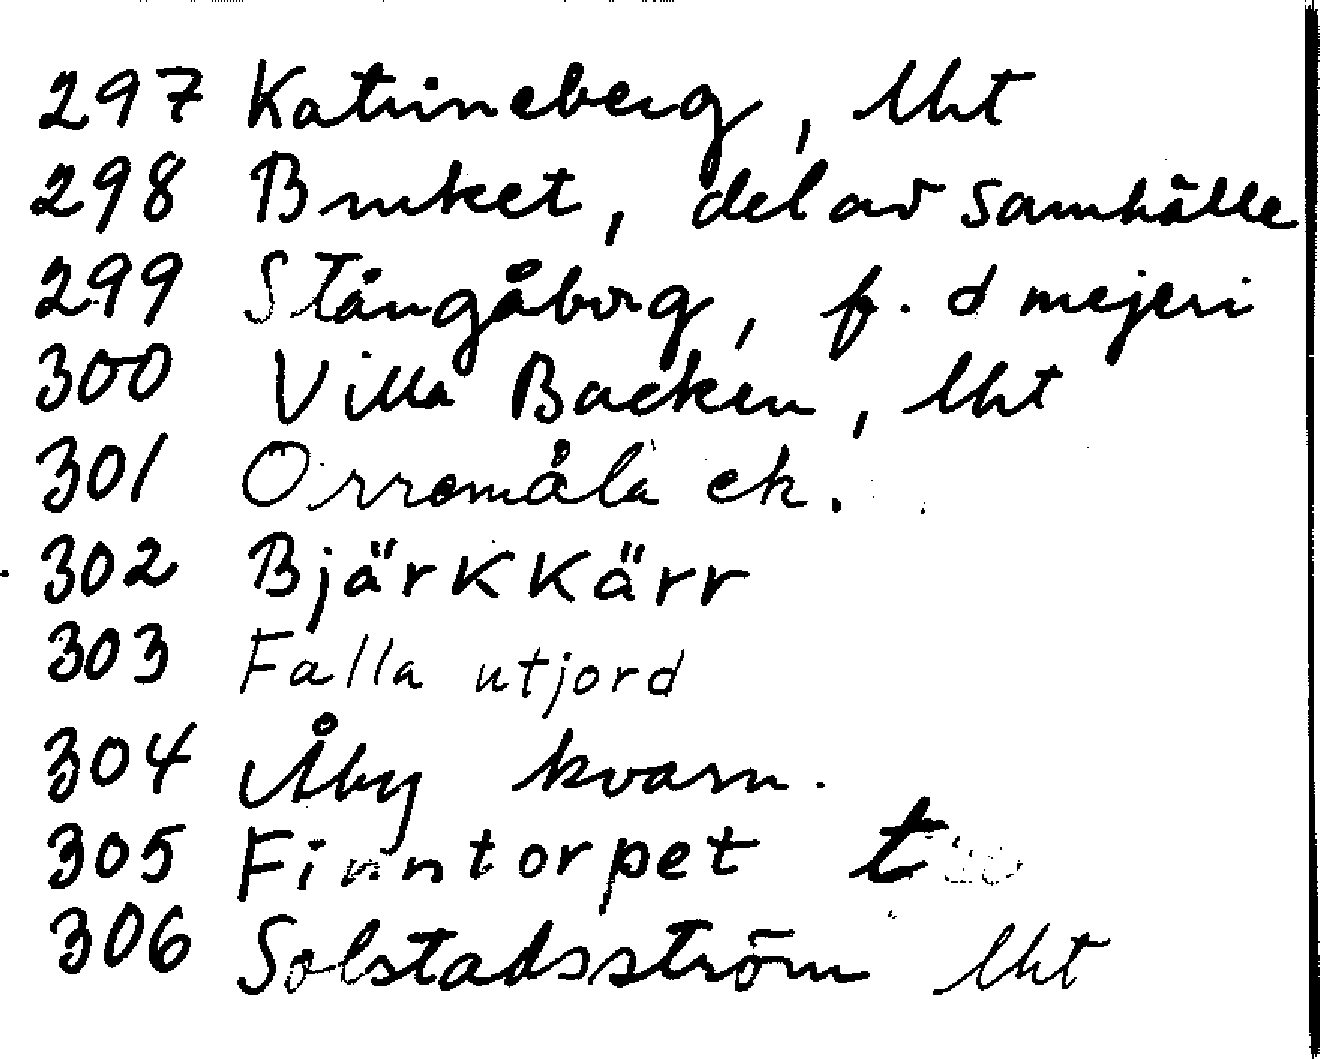 297 Katrineberg, lht
298 Bruket, del av samhälle
299 Stångåborg, f. d mejeri
300 Villa Backen, lht
301 Orremåla ek.
302 Bjärkkärr
303 Falla utjord
304 Åby kvarn.
305 Finntorpet
306 Solstadsström lht